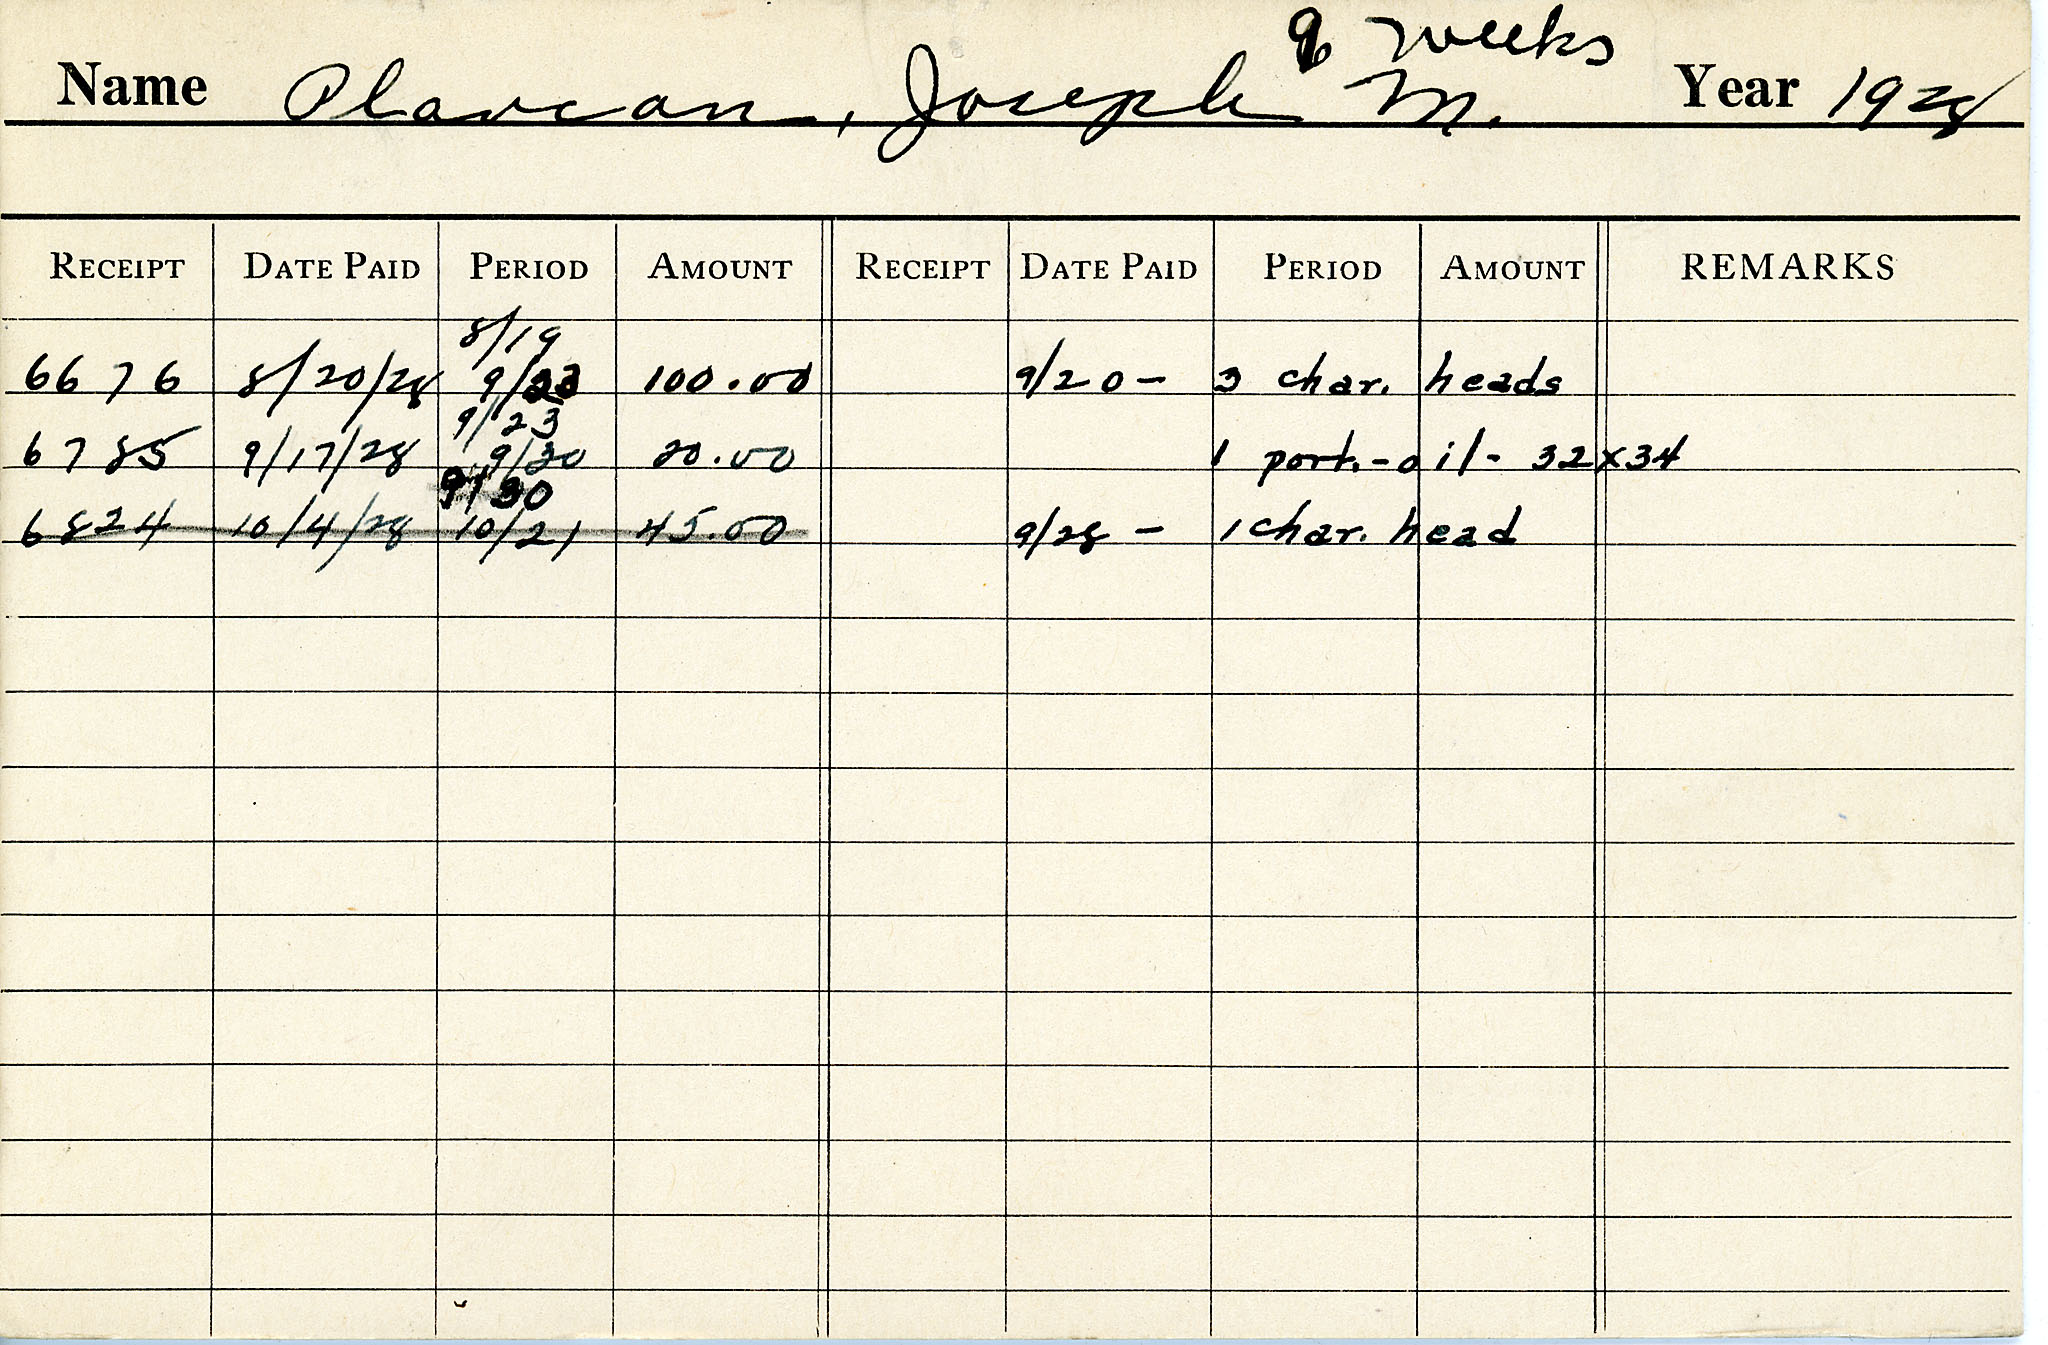 9 weeks
Name Plavcan, Joseph M. Year 1928
RECEIPT DATE PAID PERIOD AMOUNT RECEIPT DATE PAID PERIOD AMOUNT REMARKS
8/19
6676 8/20/28 9/23 100.00 9/20- 3 char. heads
9/23
6785 9/17/28 9/30 20.00 1 port.-oil- 32x34
9/30
6824 10/4/28 10/21 45.00 9/28 - 1 char. head